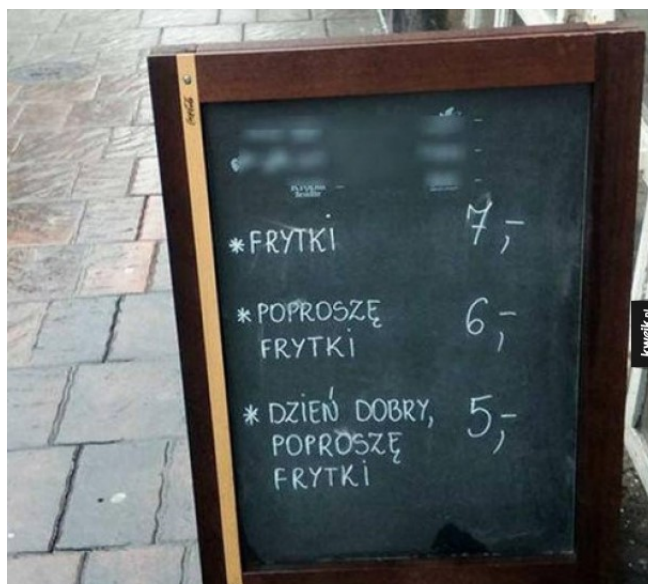 Coca-Cola
*FRYTKI 7,-
*POPROSZĘ 6,-
FRYTKI
*DZIEŃ DOBRY, 5,-
POPROSZĘ
FRYTKI
kwejk.pl